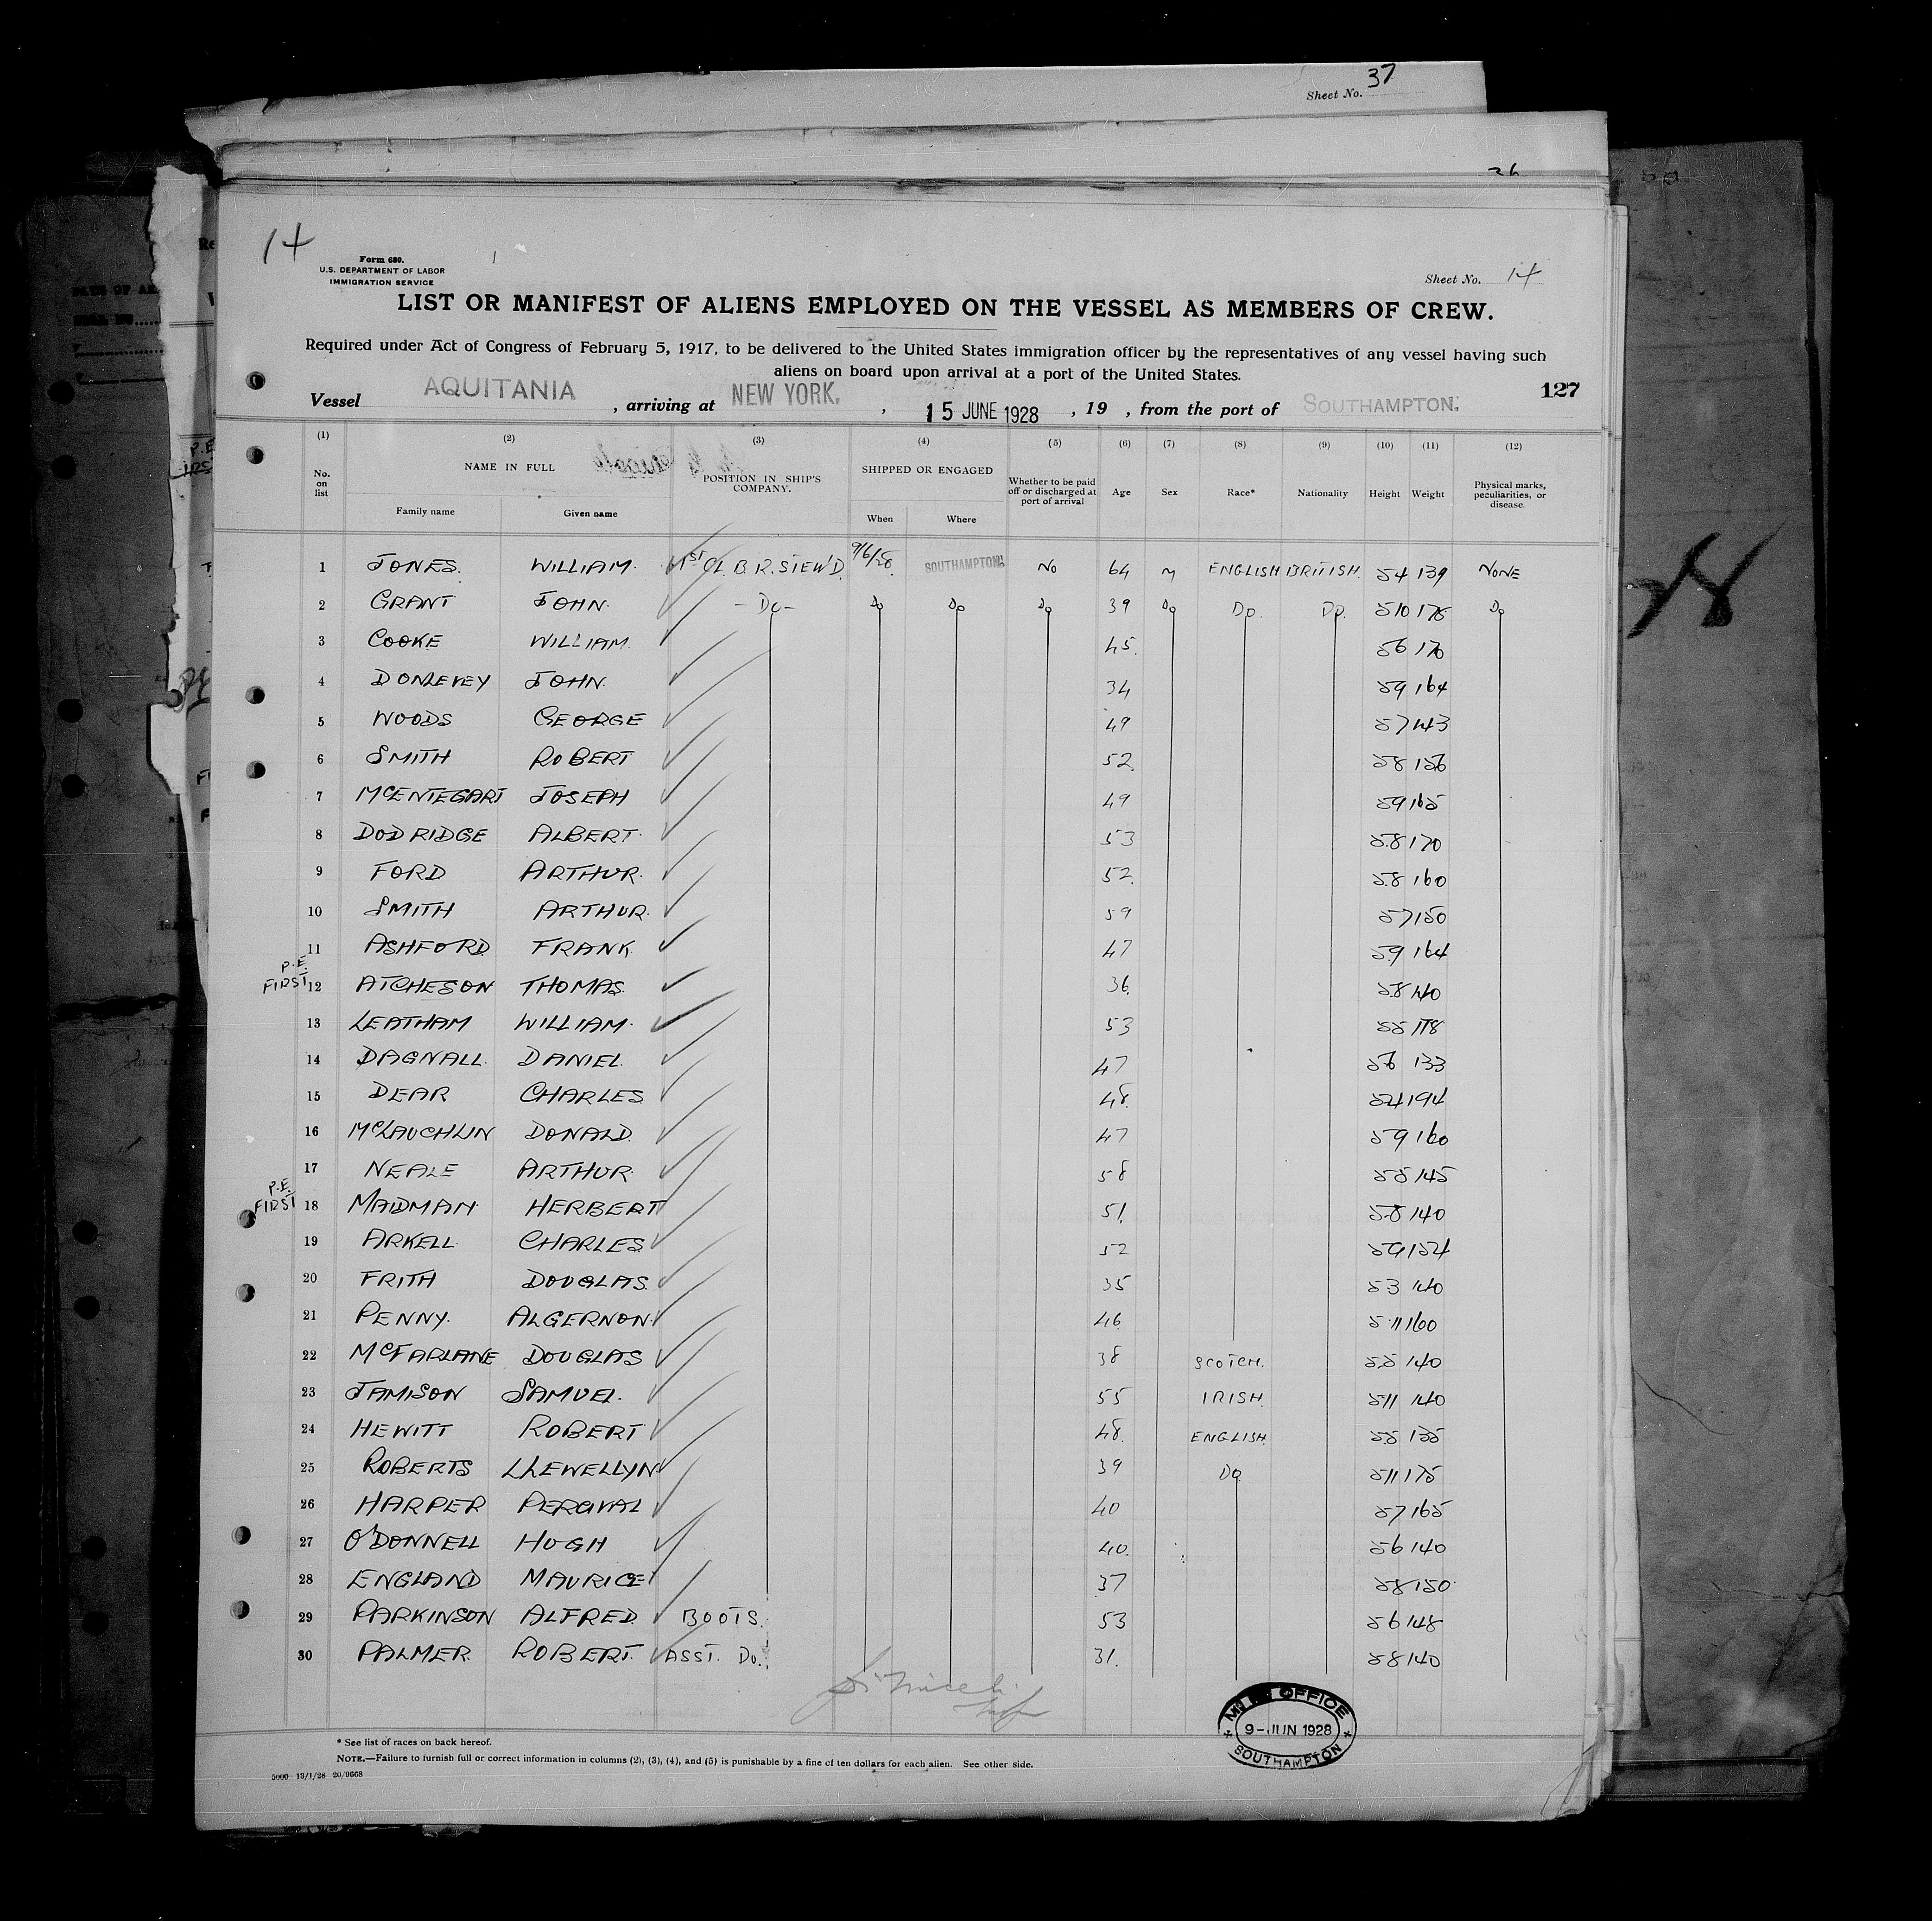 Sheet No. 37
36
14
Form 680.
U.S. DEPARTMENT OF LABOR
IMMIGRATION SERVICE
Sheet No. 14
LIST OR MANIFEST OF ALIENS EMPLOYED ON THE VESSEL AS MEMBERS OF CREW.
Required under Act of Congress of February 5, 1917, to be delivered to the United States immigration officer by the representatives of any vessel having such
aliens on board upon arrival at a port of the United States.
127
Vessel AQUITANIA , arriving at NEW YORK. , 15 JUNE 1928 , 19 , from the port of SOUTHAMPTON.
(1) (2) (3) (4) (5) (6) (7) (8) (9) (10) (11) (12)
No. on list NAME IN FULL Family name Given name POSITION IN SHIP'S COMPANY. SHIPPED OR ENGAGED When Where Whether to be paid off or discharged at port of arrival Age Sex Race* Nationality Height Weight Physical marks, peculiarities, or disease.
1 JONES. WILLIAM. 1ST CL. B.R. STEW'D. 9/6/28. SOUTHAMPTON. NO 64 M ENGLISH BRITISH. 54 139 NONE
2 GRANT JOHN. - Do - Do Do Do 39 Do Do. Do. 510 178 Do
3 COOKE WILLIAM. 45. 56 170
4 DONLEVEY JOHN. 34 59 164
5 WOODS GEORGE 49 57 143
6 SMITH ROBERT 52. 58 156
7 McENTEGART JOSEPH 49 59 165
8 DODRIDGE ALBERT. 53 58 170
9 FORD ARTHUR. 52. 58 160
10 SMITH ARTHUR. 59 57 150
11 ASHFORD. FRANK. 47 59 164
P.E. FIRST 12 ATCHESON THOMAS. 36. 58 140
13 LEATHAM WILLIAM. 53 55 178
14 DAGNALL. DANIEL. 47 56 133
15 DEAR CHARLES 48. 54 194
16 McLAUCHLIN DONALD. 47 59 160
17 NEALE ARTHUR. 58 55 145
P.E. FIRST 18 MAIDMAN. HERBERT 51. 58 140
19 ARKELL. CHARLES. 52 59 154
20 FRITH DOUGLAS. 35 53 140
21 PENNY. ALGERNON. 46 511 160
22 McFARLANE DOUGLAS 38 SCOTCH. 55 140
23 JAMISON SAMUEL. 55 IRISH. 511 140
24 HEWITT ROBERT 48. ENGLISH. 55 135
25 ROBERTS LLEWELLYN 39 Do 511 175
26 HARPER PERCIVAL 40 57 165
27 O'DONNELL HUGH 40. 56 140
28 ENGLAND MAURICE 37 58 150
29 PARKINSON ALFRED. BOOTS. 53 56 148
30 PALMER. ROBERT. ASST. Do. 31. 58 140
OFFICE
9-JUN 1928
SOUTHAMPTON
* See list of races on back hereof.
NOTE.—Failure to furnish full or correct information in columns (2), (3), (4), and (5) is punishable by a fine of ten dollars for each alien. See other side.
5000 13/1/28 20/9668